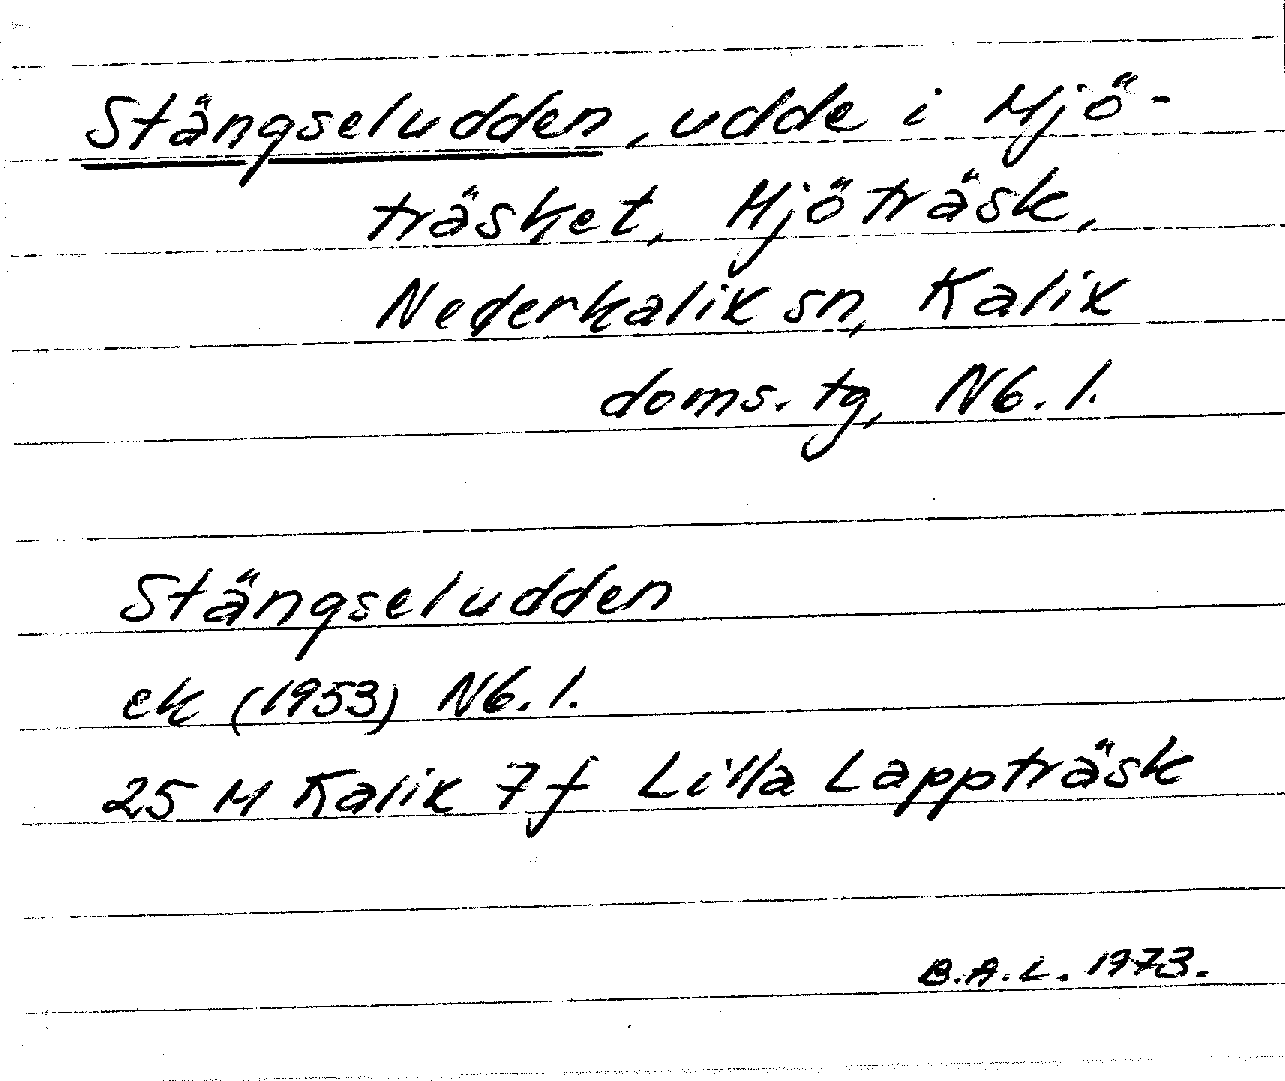 Stängseludden, udde i Mjö-
träsket, Mjöträsk,
Nederkalix sn, Kalix
doms. tg, Nb. l.
Stängseludden
ek (1953) Nb. l.
25 M Kalix 7 f Lilla Lappträsk
B.A.L. 1973.